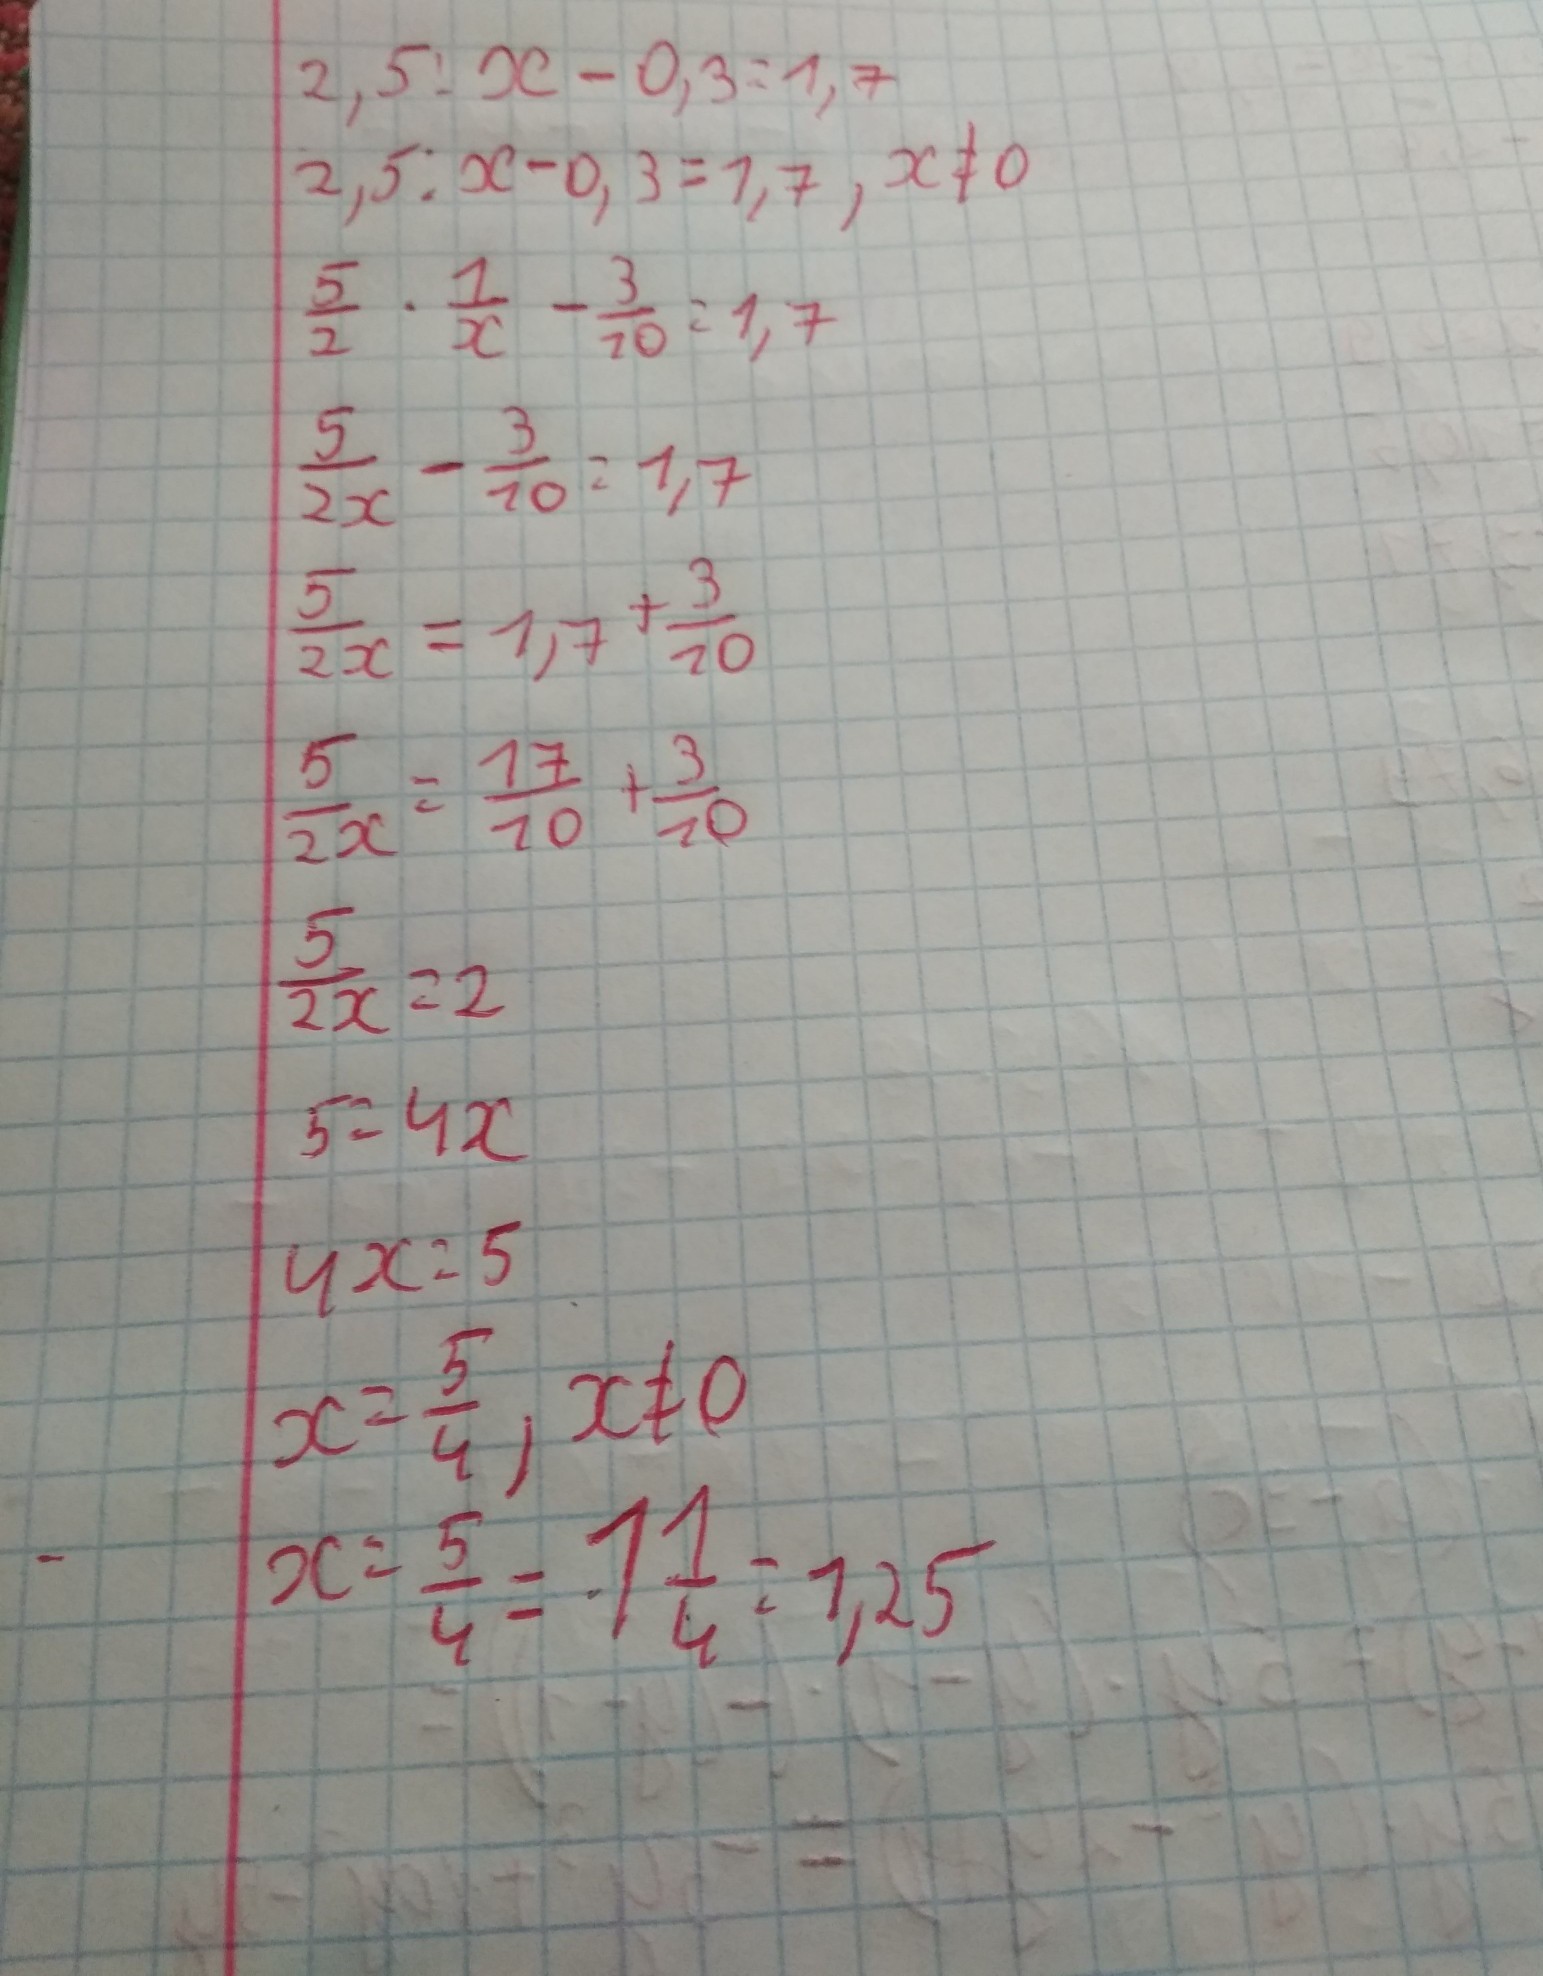 2,5:x-0,3=1,7
2,5:x-0,3=1,7, x≠0
5/2 · 1/x - 3/10 = 1,7
5/2x - 3/10 = 1,7
5/2x = 1,7 + 3/10
5/2x = 17/10 + 3/10
5/2x = 2
5=4x
4x=5
x = 5/4, x≠0
x = 5/4 = 1 1/4 = 1,25